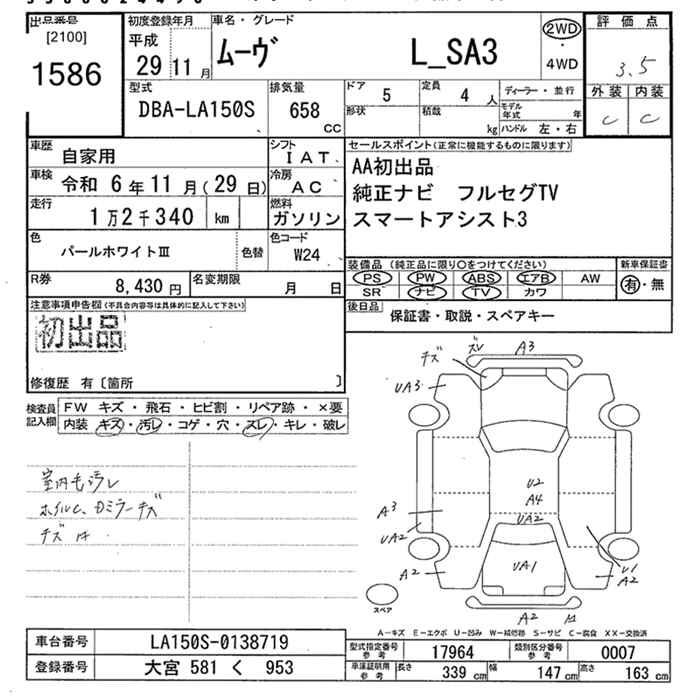 出品番号
[2100]
1586
初度登録年月
平成
29 11 月
車名・グレード
ムーヴ L_SA3
2WD
・
4WD
評価点
3.5
外装 内装
C C
型式
DBA-LA150S
排気量
658
CC
ドア 5
定員 4 人
形状
積載 kg
ディーラー・並行
モデル年式 年
ハンドル 左・右
車歴 自家用
シフト IAT
車検 令和 6年11月(29日)
冷房 AC
走行 1万2千340 km
燃料 ガソリン
色 パールホワイトⅢ 色替
色コード W24
R券 8,430円
名変期限 月 日
セールスポイント(正常に機能するものに限ります)
AA初出品
純正ナビ フルセグTV
スマートアシスト3
装備品 (純正品に限り○をつけてください)
PS PW ABS エアB AW
SR ナビ TV カワ
新車保証書
有・無
後日品 保証書・取説・スペアキー
注意事項申告欄(不具合内容等は具体的に記入して下さい)
初出品
修復歴 有〔箇所 〕
検査員記入欄
FW キズ・飛石・ヒビ割・リペア跡・×要
内装 キズ・汚レ・コゲ・穴・スレ・キレ・破レ
室内毛汚レ
ホイルC、Dミラーキズ
チズ
A3
UA3
U2
A4
UA2
A3
UA2
UA1
A2
U1
A2
A2
スペア
A-キズ E-エクボ U-凹み W-補修跡 S-サビ C-腐食 XX-交換済
車台番号 LA150S-0138719
登録番号 大宮 581 く 953
型式指定番号 参考 17964
類別区分番号 参考 0007
車庫証明用 参考 長さ 339 cm 幅 147 cm 高さ 163 cm